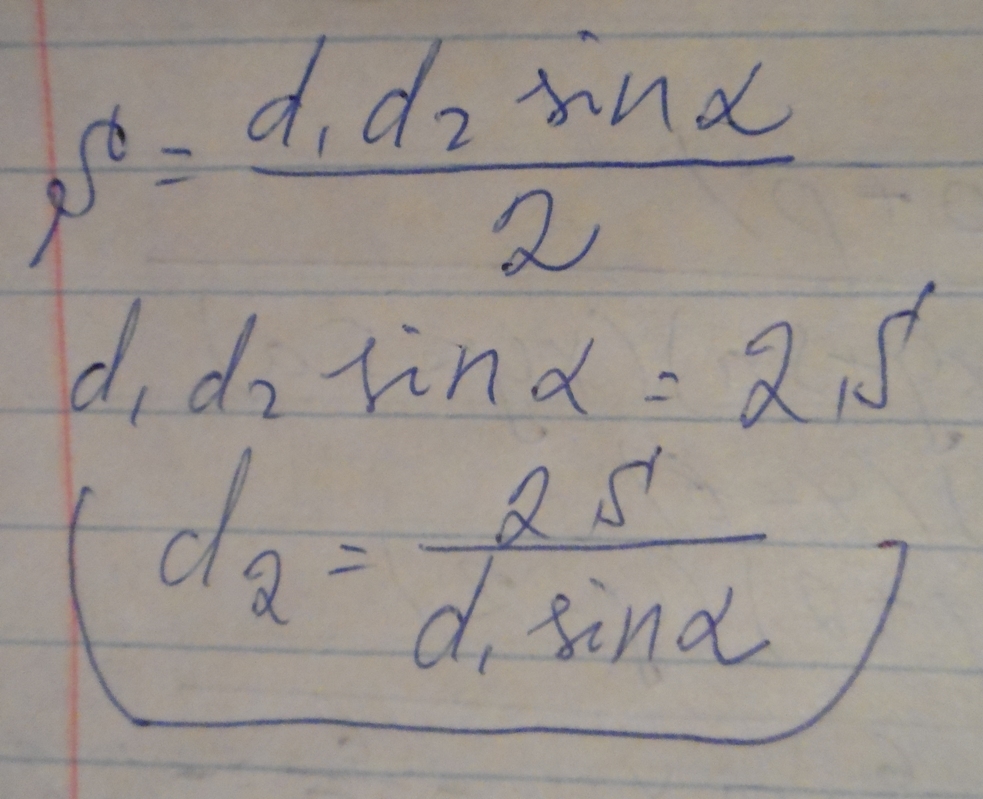 S = d₁ d₂ sin α / 2
d₁ d₂ sin α = 2S
d₂ = 2S / d₁ sin α